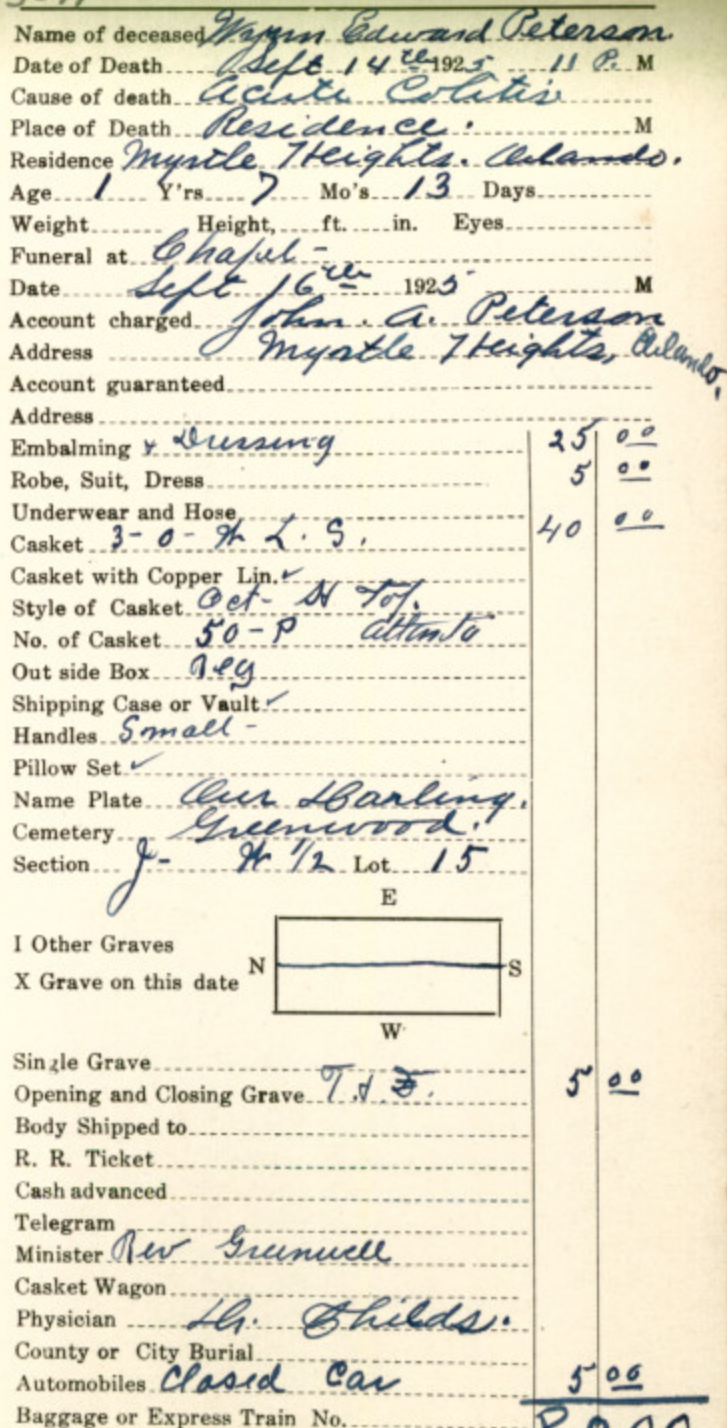 Name of deceased Wynn Edward Peterson
Date of Death Sept 14th 1925 11 P. M
Cause of death Acute Colitis
Place of Death Residence. M
Residence Myrtle Heights. Orlando.
Age 1 Y'rs 7 Mo's 13 Days
Weight Height, ft. in. Eyes
Funeral at Chapel -
Date Sept 16th 1925 M
Account charged John. A. Peterson
Address Myrtle Heights, Orlando,
Account guaranteed
Address
Embalming & Dressing 25 00
Robe, Suit, Dress 5 00
Underwear and Hose
Casket 3-0- W L. S. 40 00
Casket with Copper Lin. ✓
Style of Casket Oct-
No. of Casket 50-P Atlanta
Out side Box Reg
Shipping Case or Vault ✓
Handles Small -
Pillow Set ✓
Name Plate Our Darling.
Cemetery Greenwood.
Section J- W 1/2 Lot 15
E
I Other Graves
N S
X Grave on this date
W
Single Grave
Opening and Closing Grave 5 00
Body Shipped to
R. R. Ticket
Cash advanced
Telegram
Minister Rev Greenwell
Casket Wagon
Physician Dr. Childs.
County or City Burial
Automobiles Closed Car 5 00
Baggage or Express Train No.